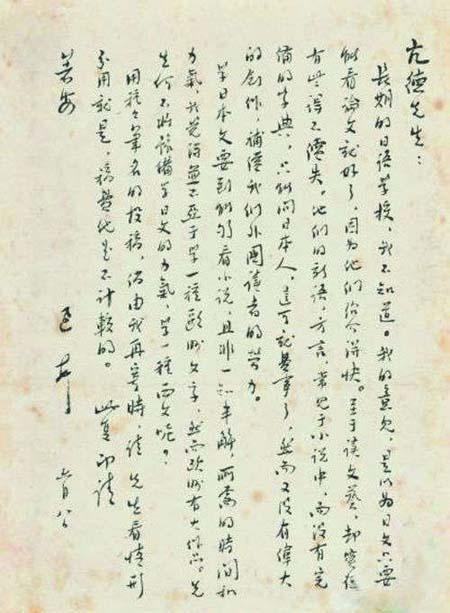 亢德先生：
長期的日語學校，我不知道。我的意見，是以為日文只要
能看論文就好了，因為他們紹介得快。至于讀文藝，却實在
有些得不償失。他們的新語，方言，常見于小說中，而沒有完
備的字典，只能問日本人，這可就費事了，然而又沒有偉大
的創作，補償我們外國讀者的勞力。
學日本文要到能夠看小說，且非一知半解，所需的時間和
力氣，我覺得並不亞于學一種歐洲文字，然而歐洲有大作品。先
生何不將豫備學日文的力氣，學一種西文呢？
用種々筆名的投稿，倘由我再寄時，請 先生看情形
分用就是，稿費他是不計較的。 此复 即請
著安
迅 上 六月八